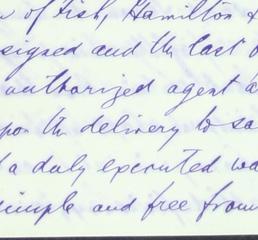 of Fish, Hamilton &
signed and the last
authorized agent
upon the delivery to
a duly executed
simple and free from